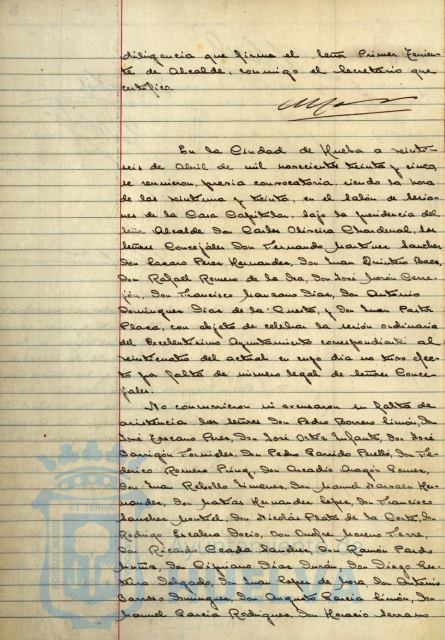 diligencia que firma el Señor Primer Tenien-
te de Alcalde, conmigo el Secretario que
certifico.
En la Ciudad de Huelva a veinti-
seis de Abril de mil novecientos treinta y cinco,
se reunieron, previa convocatoria, siendo la hora
de las veintiuna y treinta, en el salón de sesio-
nes de la Casa Capitular, bajo la presidencia del
Señor Alcalde Don Carlos Oliveira Chardenal, los
Señores Concejales Don Fernando Martinez Sanchez,
Don Lazaro Perez Hernandez, Don Juan Quintero Baez,
Don Rafael Romero de la Osa, Don José Morón Cerre-
jón, Don Francisco Manzano Diaz, Don Antonio
Dominguez Diaz de la Cuesta, y Don Juan Pastor
Plaza, con objeto de celebrar la sesión ordinaria
del Excelentisimo Ayuntamiento correspondiente al
veinticuatro del actual en cuyo dia no tuvo efec-
to por falta de número legal de Señores Conce-
jales.
No concurrieron ni excusaron su falta de
asistencia los Señores Don Pedro Borrero Limón, Don
José Toscano Perez, Don José Ortiz Infante, Don José
Barrigón Fornieles, Don Pedro Garrido Perelló, Don Fe-
derico Romero Don Arcadio Aragón Gomez,
Don Juan Rebollo Jimenez, Don Manuel Narvaez Her-
nandez, Don Matías Hernandez Lopez, Don Francisco
Sanchez Don Nicolás Prats de la Corte, Don
Rodrigo Escalera Don Onofre Moreno
Don Ricardo Sanchez, Don Ramón Pardo
Don Cipriano Diaz Durán, Don Diego
Delgado, Don Juan Lopez de Mora, Don Antonio
Borrero Dominguez, Don Augusto Garcia Limón, Don
Manuel Garcia Rodriguez, Don Horacio Serrano